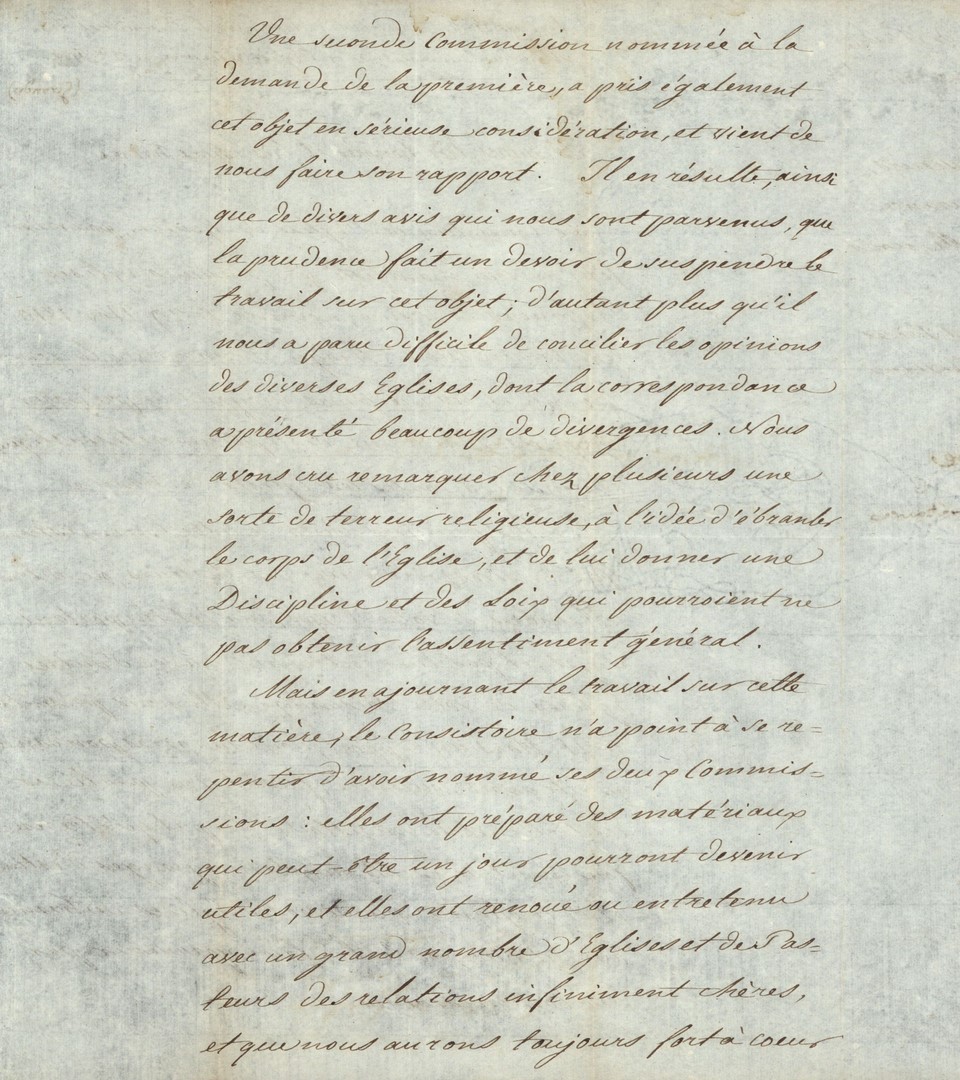 Une seconde Commission nommée à la
demande de la première, a pris également
cet objet en sérieuse considération, et vient de
nous faire son rapport. Il en résulte, ainsi
que de divers avis qui nous sont parvenus, que
la prudence fait un devoir de suspendre le
travail sur cet objet; d'autant plus qu'il
nous a paru difficile de concilier les opinions
des diverses Eglises, dont la correspondance
a présenté beaucoup de divergences. Nous
avons cru remarquer chez plusieurs une
sorte de terreur religieuse, à l'idée d'ébranler
le corps de l'Eglise, et de lui donner une
Discipline et des Loix qui pourroient ne
pas obtenir l'assentiment général.
Mais en ajournant le travail sur cette
matière, le Consistoire n'a point à se re=
pentir d'avoir nommé ses deux Commis=
sions : elles ont préparé des matériaux
qui peut-être un jour pourront devenir
utiles, et elles ont renoué ou entretenu
avec un grand nombre d'Eglises et de Pas=
teurs des relations infiniment chères,
et que nous aurons toujours fort à coeur